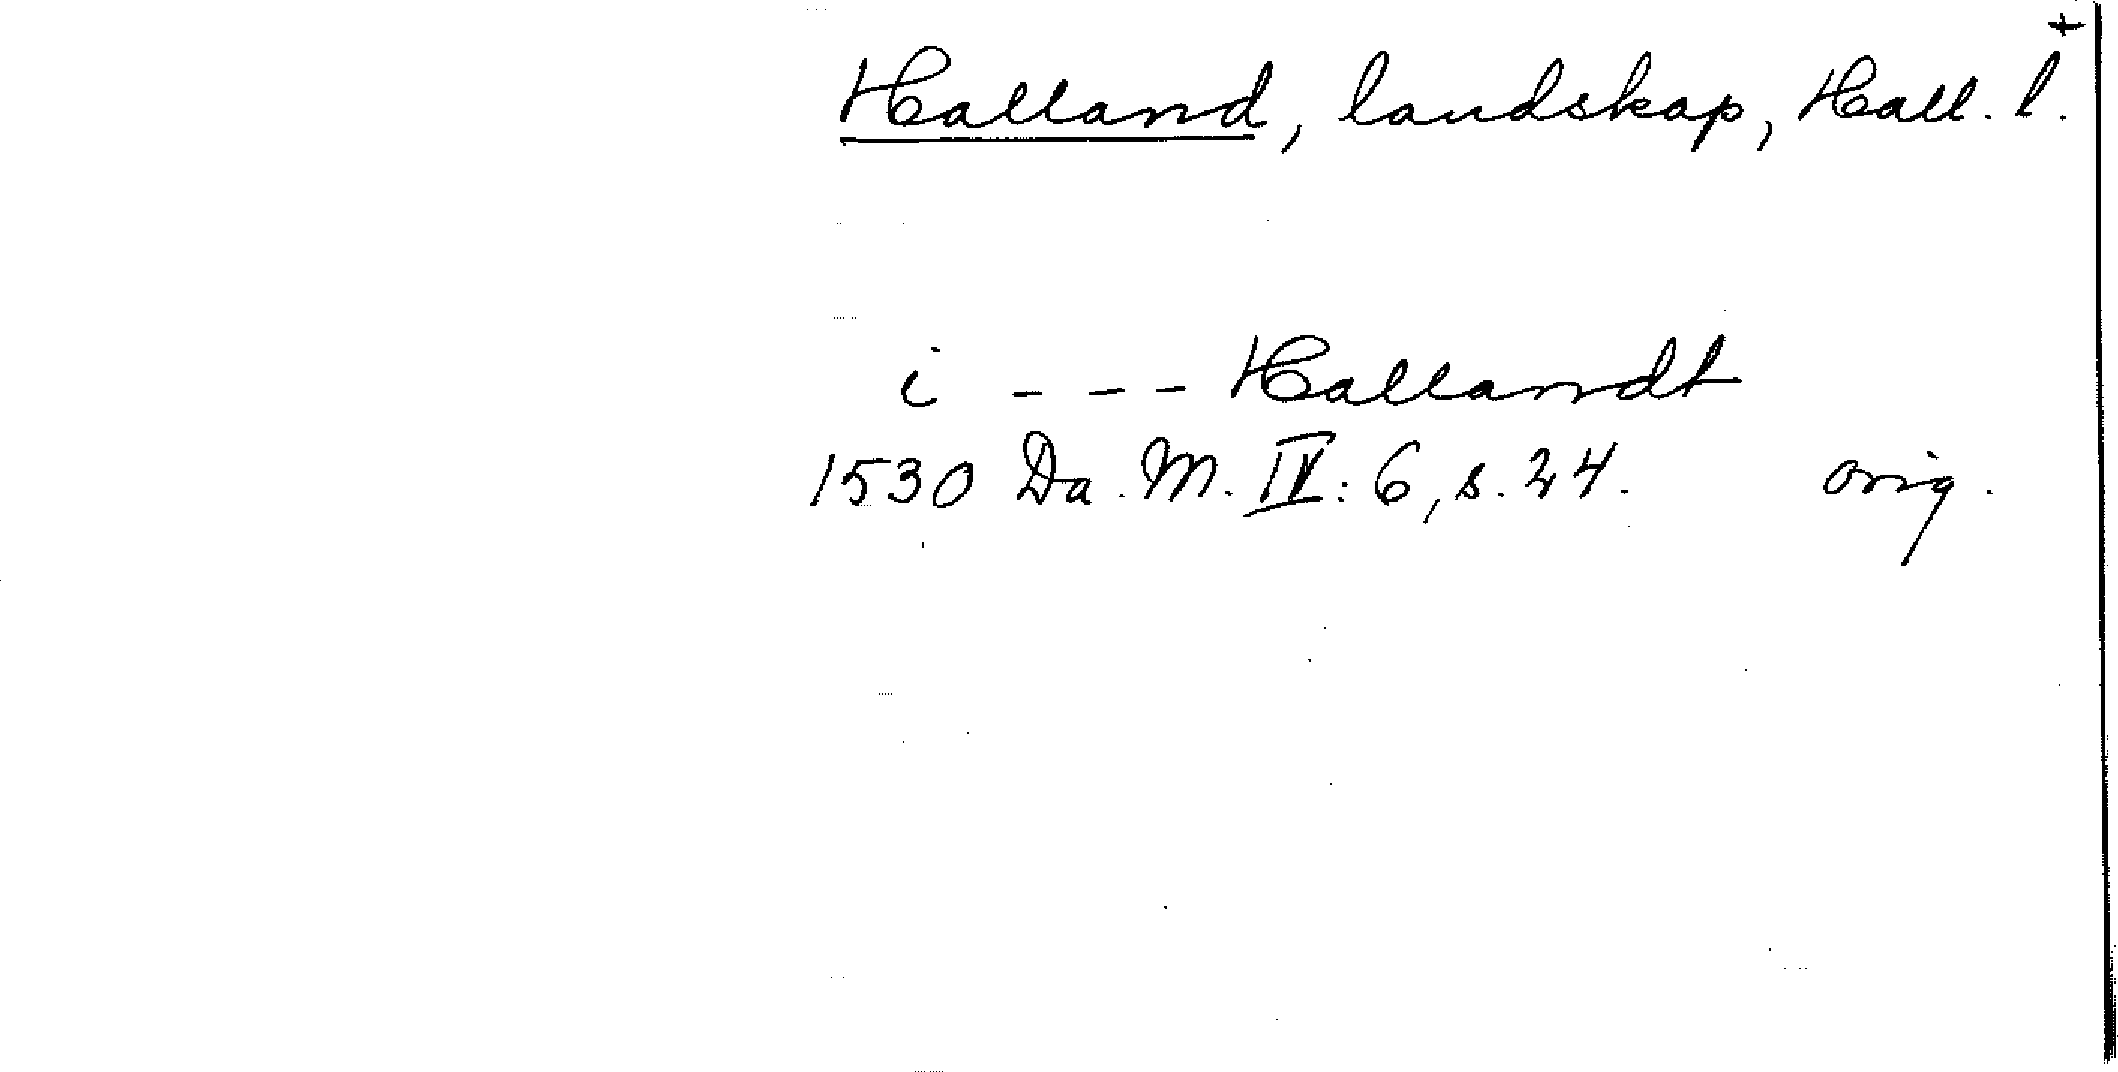 Halland, landskap, Hall. l. +
i - - - Hallandt
1530 Da. M. IV: 6, s. 24. orig.